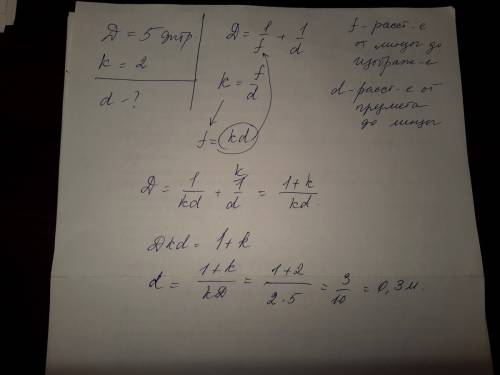 D = 5 дптр
k = 2
d - ?
D = 1/f + 1/d
k = f/d
f = kd
f - расст-е
от линзы до
изображ-е
d - расст-е от
предмета
до линзы
D = 1/kd + 1/d k = 1+k/kd
Dkd = 1+k
d = 1+k/kD = 1+2/2·5 = 3/10 = 0,3 м.